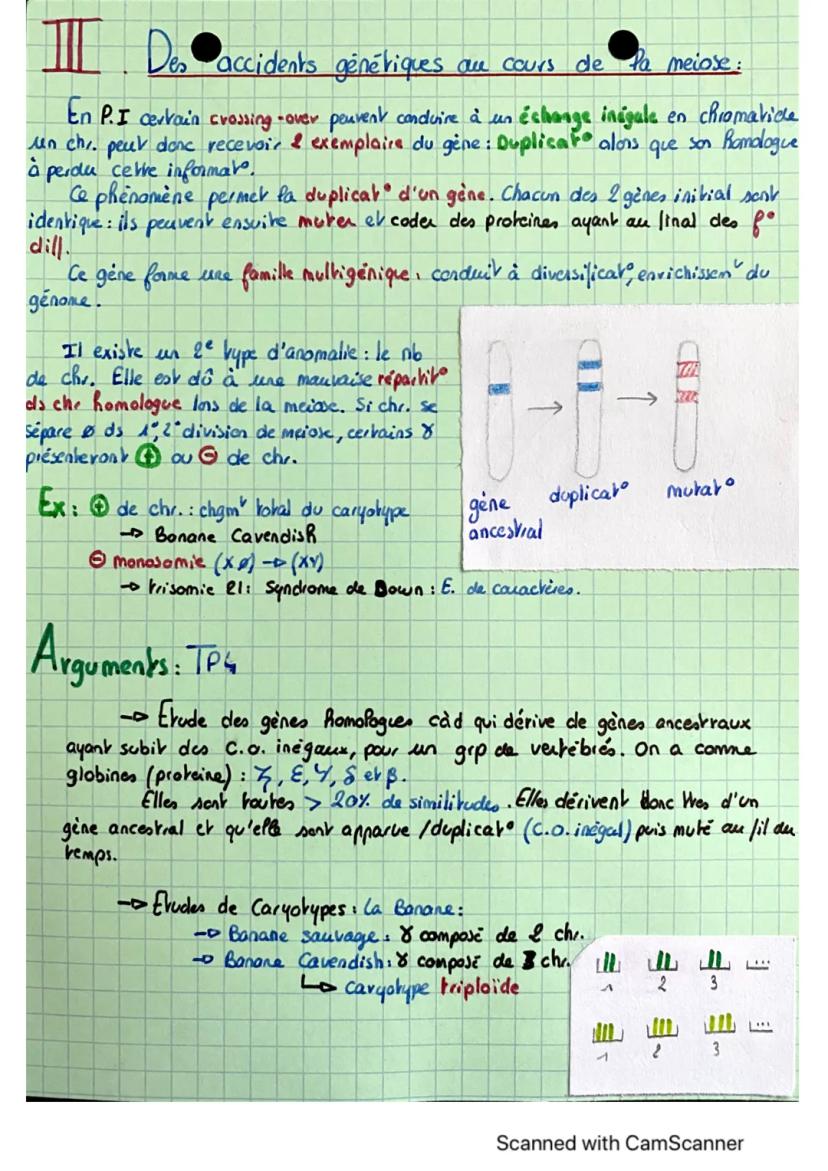 III. Des accidents génétiques au cours de la meiose :
En P.I certain crossing-over peuvent conduire à un échange inégale en chromatide
un chr. peut donc recevoir 2 exemplaire du gène : Duplicat° alors que son homologue
à perdu cette informat°.
Ce phénomène permet la duplicat° d'un gène. Chacun des 2 gènes initial sont
identique : ils peuvent ensuite muter et coder des proteines ayant au final des f°
diff.
Ce gène forme une famille multigénique, conduit à diversificat°, enrichissemt du
génome.
Il existe un 2e type d'anomalie : le nb
de chr. Elle est dû à une mauvaise répartit°
ds chr homologue lors de la meiose. Si chr. se
sépare ø ds 1°, 2° division de meiose, certains γ
présenteront + ou - de chr.
gène
ancestral
duplicat°
mutat°
Ex : + de chr. : chgmt total du caryotype
→ Banane Cavendish
- monosomie (X ø) → (XY)
→ trisomie 21 : Syndrome de Down : E. de caractères.
Arguments : TP4
→ Etude des gènes homologues càd qui dérive de gènes ancestraux
ayant subit des C.O. inégaux, pour un grp de vertébrés. On a comme
globines (proteine) : ζ, ε, γ, δ et β.
Elles sont toutes > 20% de similitudes. Elles dérivent donc ttes d'un
gène ancestral et qu'elle sont apparue /duplicat° (C.O. inégal) puis muté au fil du
temps.
→ Etudes de Caryotypes : La Banane :
→ Banane sauvage : γ composé de 2 chr.
→ Banane Cavendish : γ composé de 3 chr.
↳ Caryotype triploïde
1 2 3 ...
1 2 3 ...
Scanned with CamScanner